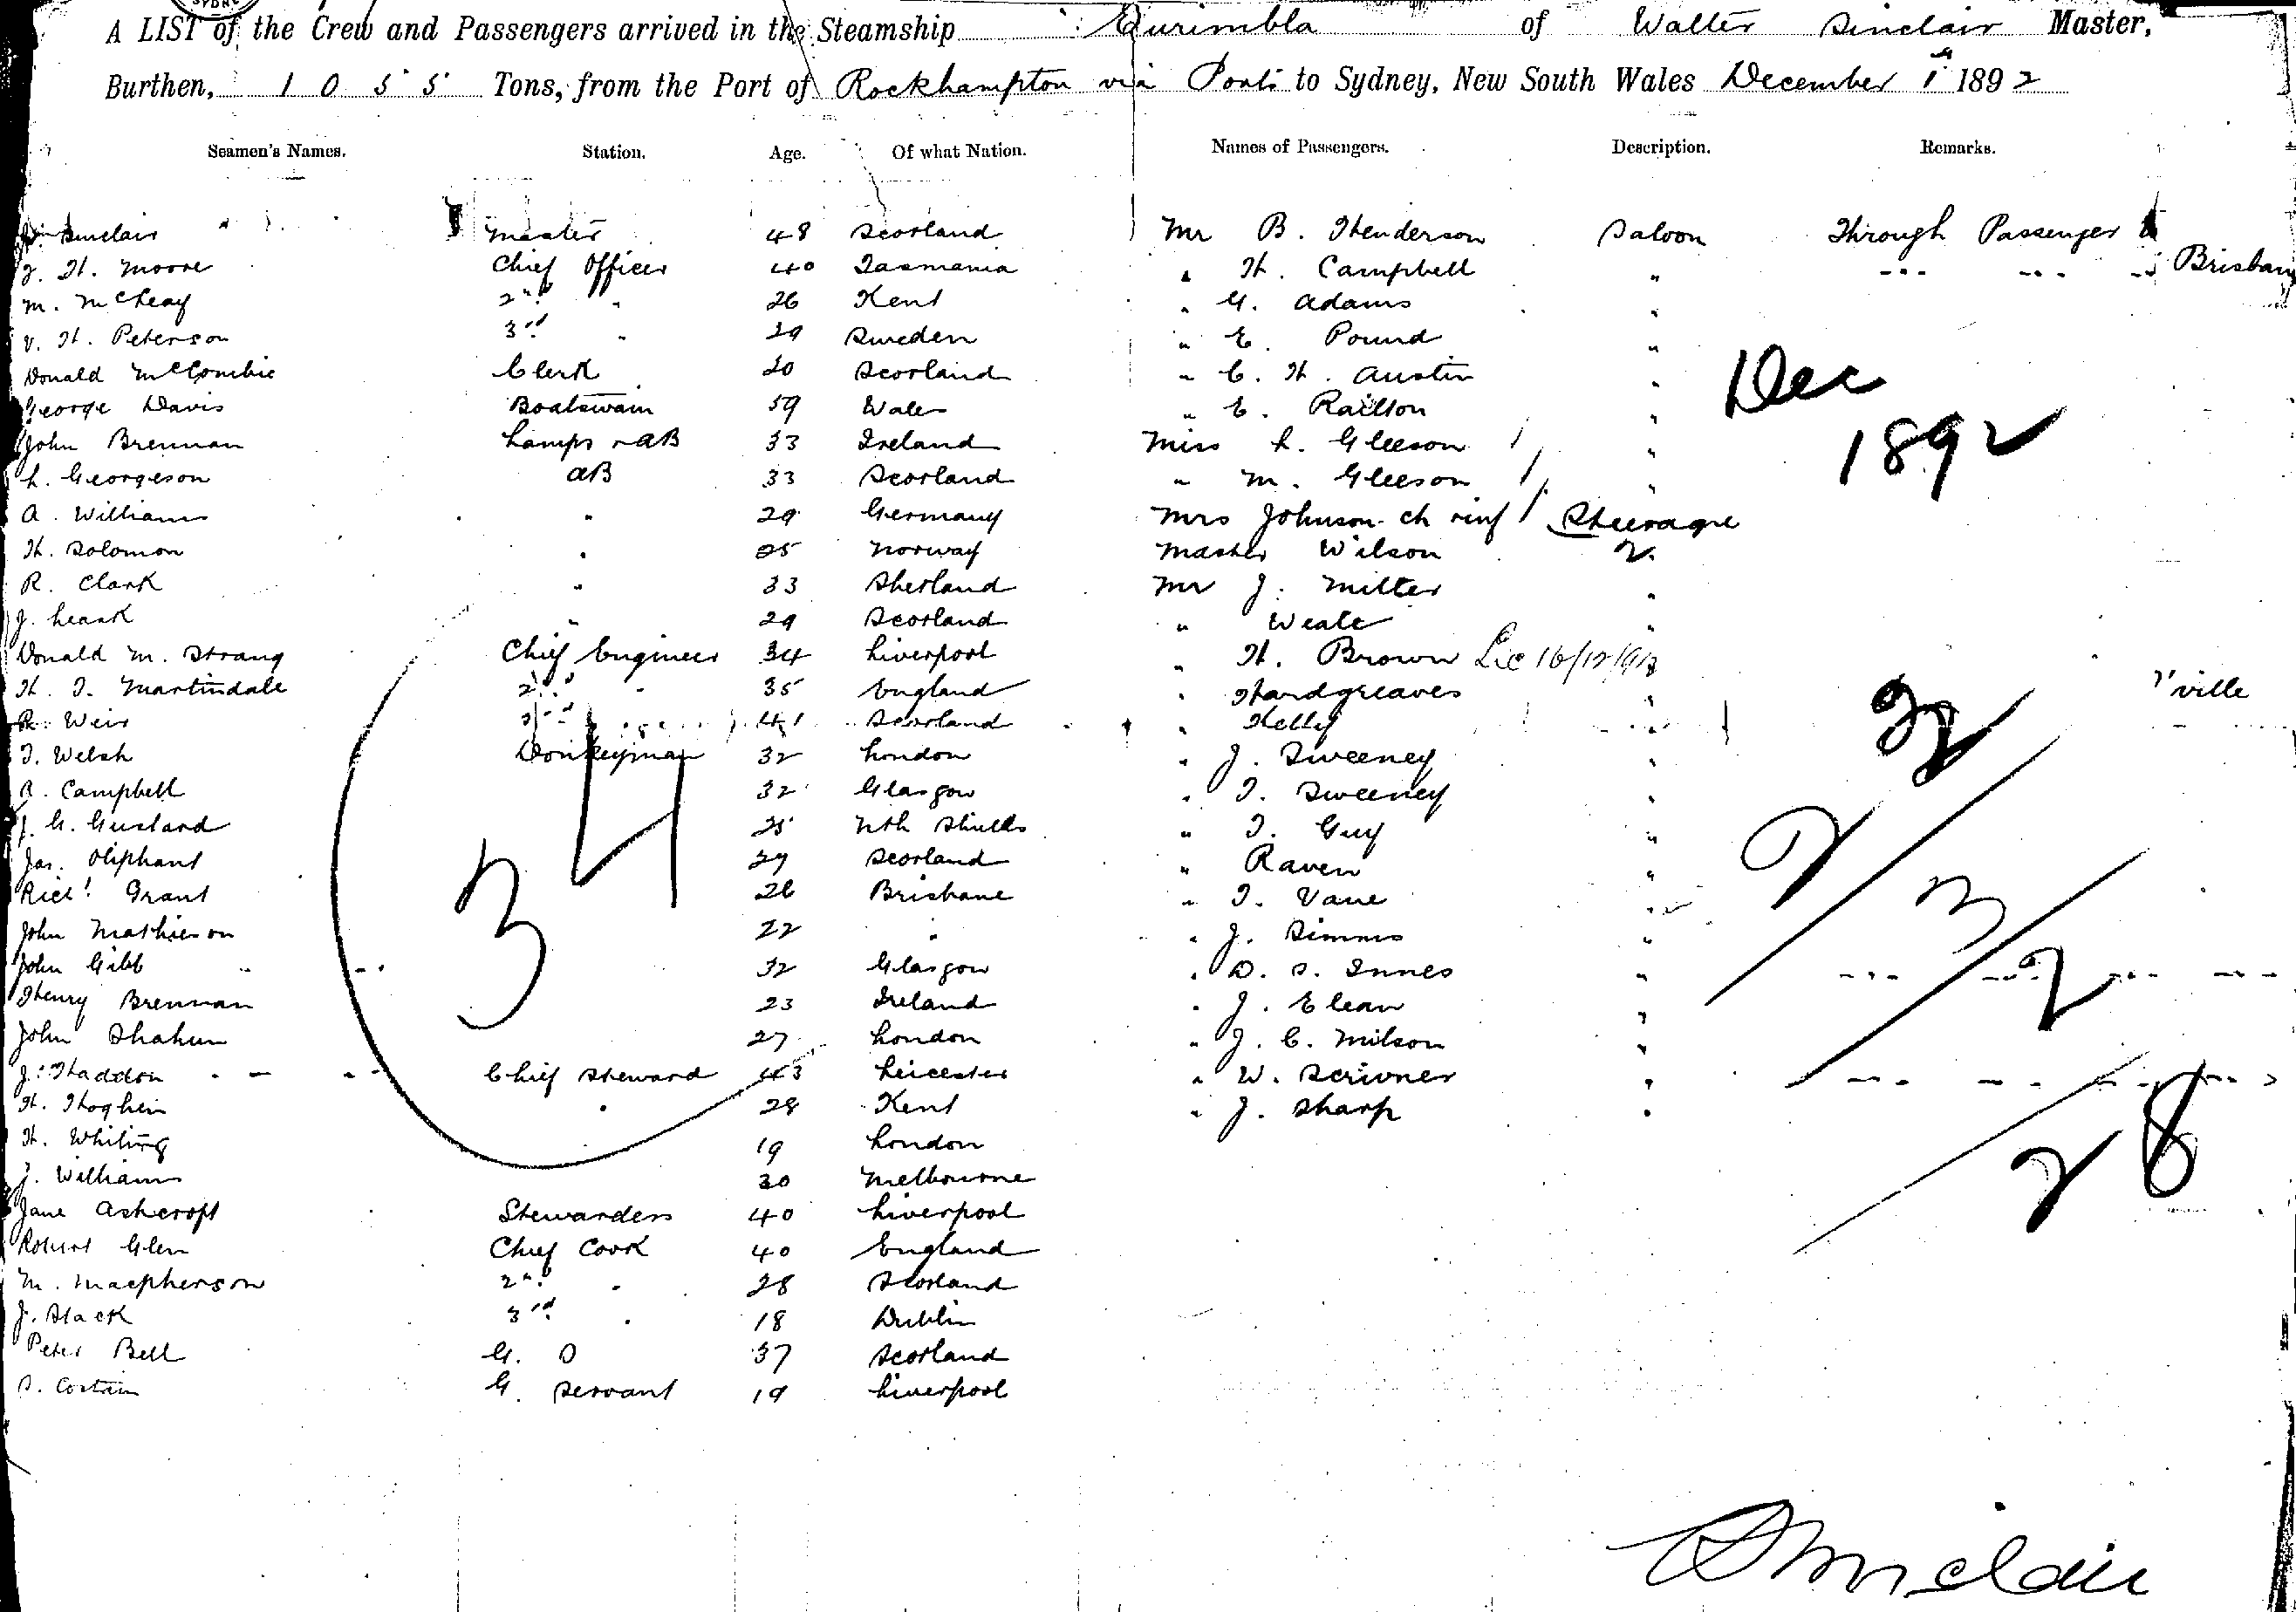 A LIST of the Crew and Passengers arrived in the Steamship Eurimbla of Walter Sinclair Master,
Burthen, 1055 Tons, from the Port of Rockhampton via Ports to Sydney, New South Wales December 1st 1892
Seamen's Names. Station. Age. Of what Nation. Names of Passengers. Description. Remarks.
W. Sinclair Master 48 Scotland Mr B. Henderson Saloon Through Passenger to
J. H. Moore Chief Officer 40 Tasmania " H. Campbell " Brisbane
M. McCheay 2nd " 26 Kent " G. Adams "
V. H. Peterson 3rd " 29 Sweden " E. Pound "
Donald McCombie Clerk 20 Scotland " C. H. Austin "
George Davis Boatswain 59 Wales " E. Railton " Dec
John Brennan Lamps & AB 33 Ireland Miss L. Gleeson "
L. Georgeson AB 33 Scotland " M. Gleeson " 1892
A. Williams " 29 Germany Mrs Johnson ch inf Steerage
H. Solomon " 25 Norway Master Wilson "
R. Clark " 33 Shetland Mr J. Milter "
J. Leask " 29 Scotland " Weale "
Donald M. Strang Chief Engineer 34 Liverpool " H. Brown
H. T. Martindale 2nd " 35 England " Hardgreaves " T'ville
R. Weir 3rd 41 Scotland " Kelly "
T. Welsh Donkeyman 32 London " J. Sweeney "
A. Campbell 32 Glasgow " T. Sweeney "
J. G. Gustard 25 Nth Shields " T. Guy "
Jas. Oliphant 29 Scotland " Raven "
Richd Grant 26 Brisbane " T. Vane "
34
John Mathieson 22 " " J. Simms "
John Gibb 32 Glasgow " D. S. Innes "
Henry Brennan 23 Ireland " J. Elean "
John Shahun 27 London " J. C. Milson "
J. Haddon Chief Steward 43 Leicester " W. Scrivner "
H. Hoghein " 28 Kent " J. Sharp "
H. Whiting 19 London
28
J. Williams 30 Melbourne
Jane Ashcroft Stewardess 40 Liverpool
Robert Glen Chief Cook 40 England
M. Macpherson 2nd " 28 Scotland
J. Slack 3rd " 18 Dublin
Peter Bell G. S 37 Scotland
S. Costain G. Servant 19 Liverpool
W Sinclair